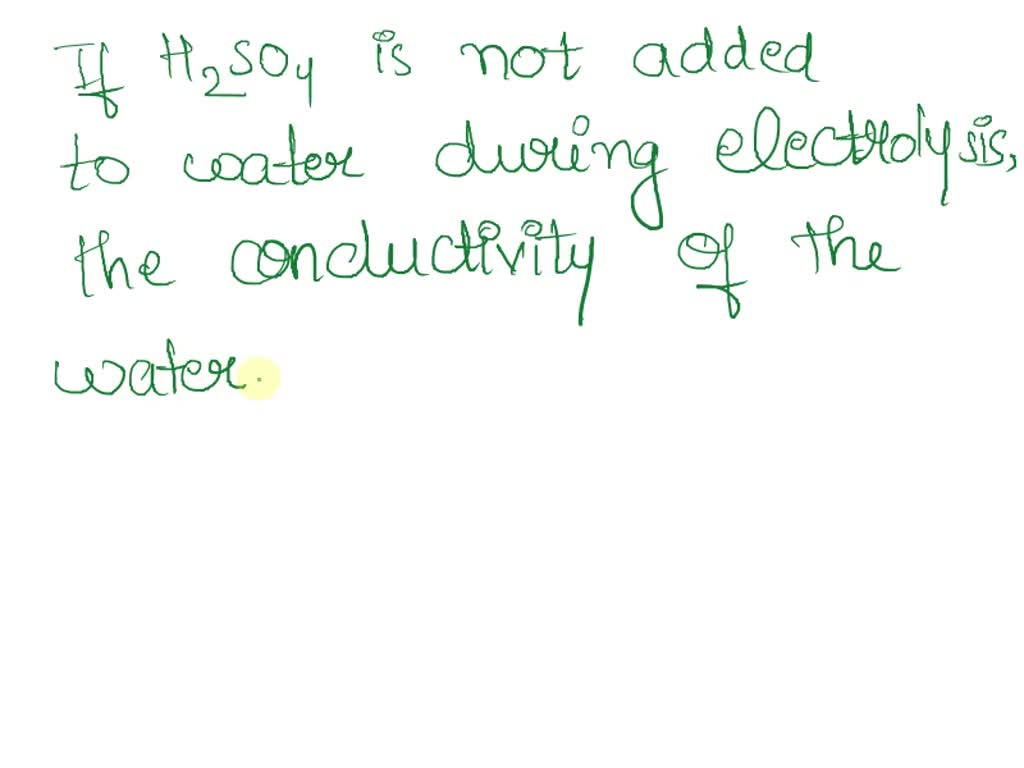 If H₂SO₄ is not added
to water during electrolysis,
the conductivity of the
water.